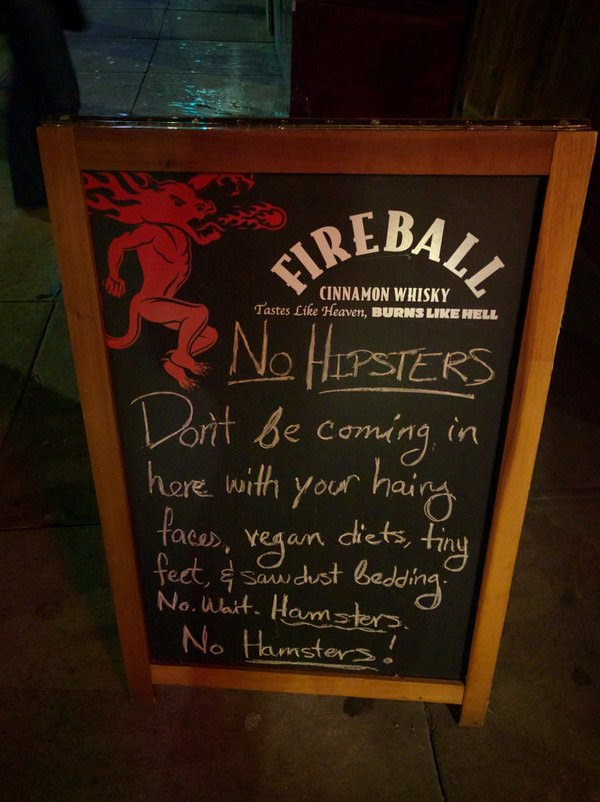 FIREBALL
CINNAMON WHISKY
Tastes Like Heaven, BURNS LIKE HELL
No HIPSTERS
Don't Be coming in
here with your hairy
faces, vegan diets, tiny
feet, & sawdust Bedding.
No. Wait. Hamsters.
No Hamsters!